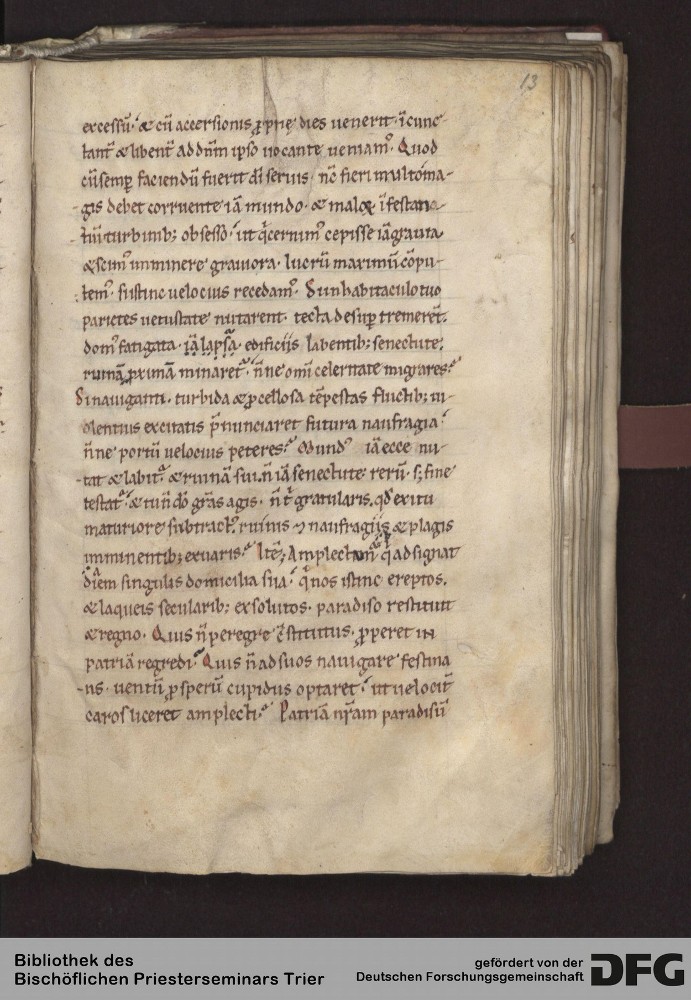 13
excessũ· & cũ accersionis ꝓprię dies uenerit· ĩcunc-
tant᷑ & libent᷑ ad dñm ipso uocante ueniam᷒· Quod
cũ semꝑ faciendũ fuerit dĩ seruis· nc̃ fieri multo ma-
gis debet corruente iã mundo· & maloꝝ ĩfestan-
tiũ turbinib; obsesso· ut q̇ cernim᷒ cepisse iã grauia
& scim᷒ imminere grauiora· lucrũ maximũ cõpu-
tem᷒· si istinc uelocius recedam᷒· Si in habitaculo tuo
parietes uetustate nutarent· tecta desuꝑ tremerẽt·
dom᷒ fatigata· iã lapsa edificiis labentib; senectute·
ruinã ꝓximã minaret᷑· ñne omi celeritate migrares·
Si nauiganti· turbida & ꝓcellosa tẽpestas fluctib; ui-
olentius excitatis p̃nunciaret futura naufragia·
ñne portũ uelocius peteres· Mund᷒ iã ecce nu-
tat & labit᷑· & ruinã sui· ñ iã senectute rerũ· s; fine
testat᷑· & tu ñ dõ grãs agis· ñ t᷑ gratularis· qđ exitu
maturiore subtract᷒ ruinis ⁊ naufragiis & plagis
imminentib; exuaris· Itẽ; Amplectam᷑ q̇ adsignat
diem singulis domicilia sua· q̇ nos istinc ereptos·
& laqueis secularib; exsolutos· paradiso restituit
& regno· Quis ñ peregre c̃stitutus· ꝓperet in
patriã regredi· Quis ñ ad suos nauigare festina-
ns· uentũ ꝓsperũ cupidus optaret· ut uelocit᷑
caros liceret amplecti· Patriã nr̃am paradisũ
Bibliothek des
Bischöflichen Priesterseminars Trier
gefördert von der
Deutschen Forschungsgemeinschaft
DFG